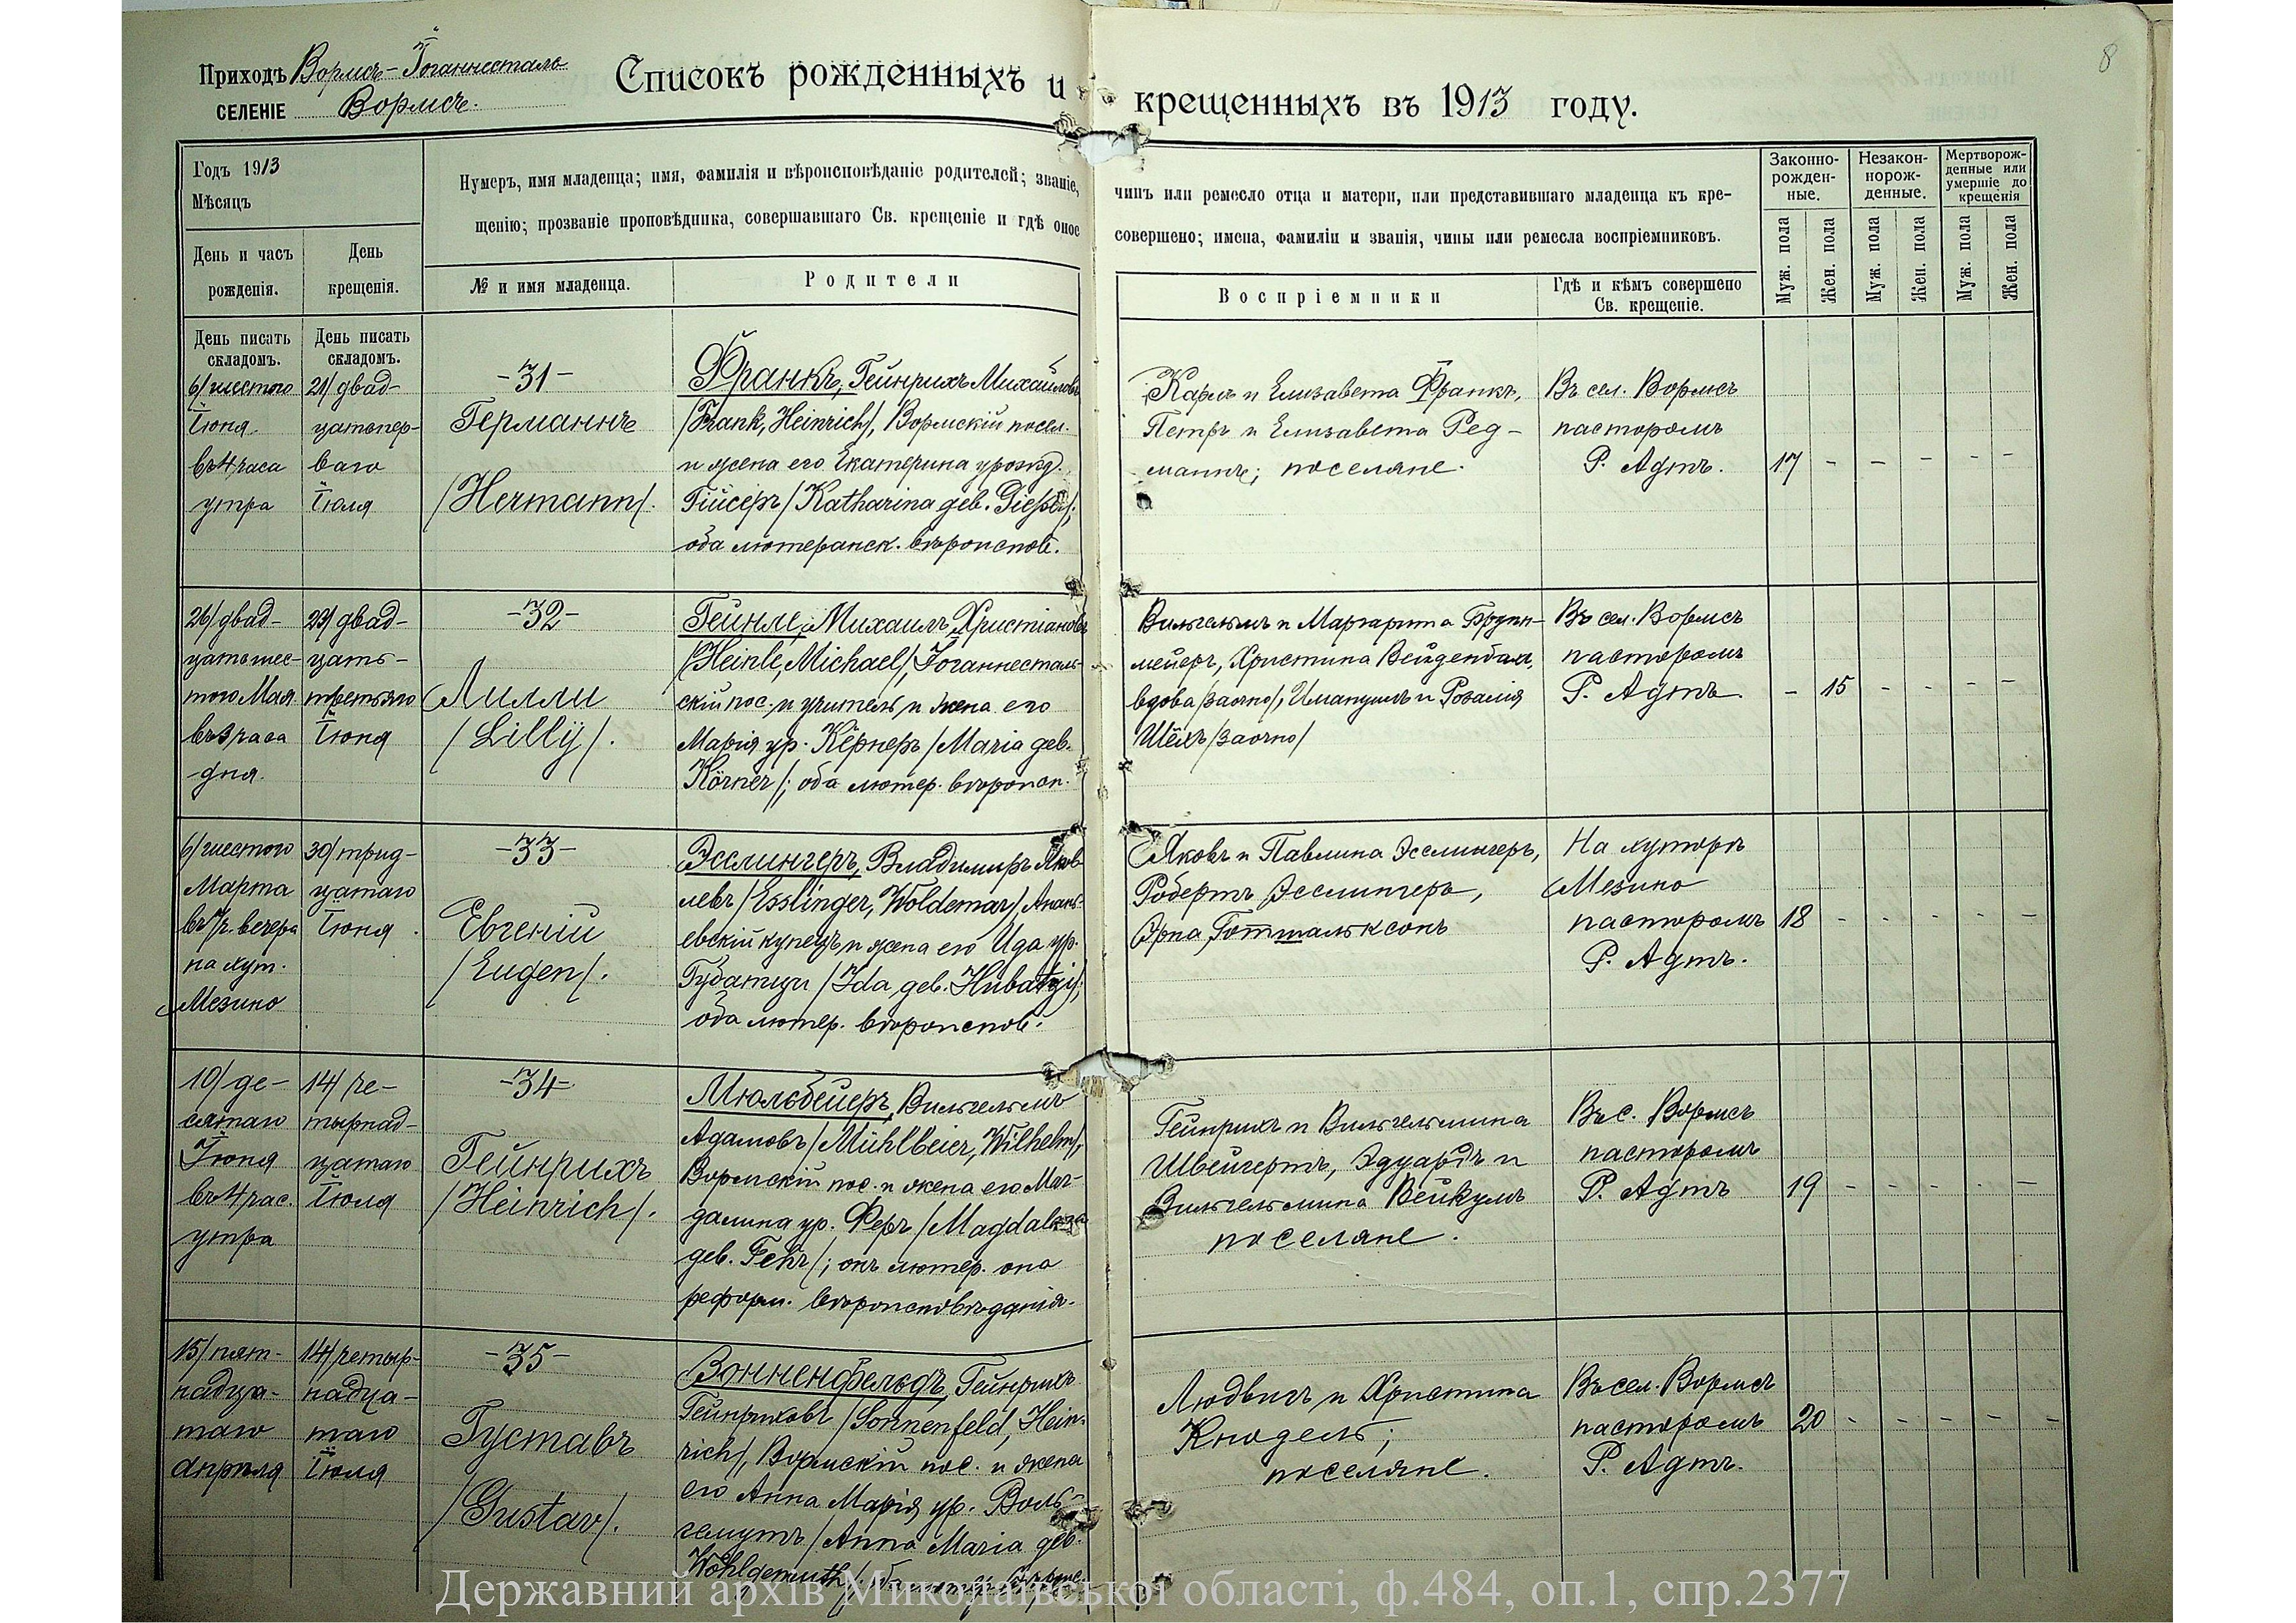 8
Приходъ Вормсъ-Іоганнесталь
СЕЛЕНІЕ Вормсъ.
Списокъ рожденныхъ и крещенныхъ въ 1913 году.
Годъ 1913
Мѣсяцъ
День и часъ
рожденія.
День
крещенія.
Нумеръ, имя младенца; имя, фамилія и вѣроисповѣданіе родителей; званіе, чинъ или ремесло отца и матери, или представившаго младенца къ кре-
щенію; прозваніе проповѣдника, совершавшаго Св. крещеніе и гдѣ оное совершено; имена, фамиліи и званія, чины или ремесла воспріемниковъ.
№ и имя младенца.
Родители
Воспріемники
Гдѣ и кѣмъ совершено
Св. крещеніе.
Законно-
рожден-
ные.
Незакон-
норож-
денные.
Мертворож-
денные или
умершіе до
крещенія
Муж. пола
Жен. пола
Муж. пола
Жен. пола
Муж. пола
Жен. пола
День писать
складомъ.
День писать
складомъ.
6/шестого
Іюня
въ 4 часа
утра
21/двад-
цатьпер-
ваго
Іюля
-31-
Германнъ
/Hermann/.
Франкъ, Гейнрихъ Михайловъ
/Frank, Heinrich/, Вормскій посел.
и жена его Екатерина урожд.
Гійсеръ /Katharina geb.
оба лютеранск. вѣроисповѣ.
Карлъ и Елизавета Франкъ,
Петръ и Елизавета Ред-
маннъ; поселяне.
Въ сел. Вормсъ
пасторомъ
Р. Адтъ.
17 - - - - -
26/двад-
цатьшес-
того Мая
въ 3 часа
дня.
23/двад-
цать-
третьяго
Іюня
-32-
Лилли
/Lilly/.
Гейнле, Михаилъ Христіановъ
/Heinle, Michael/, Іоганнесталь-
скій пос. и учитель и жена его
Марія ур. Кёрнеръ /Maria geb.
Körner/; оба лютер. вѣроисп.
Вильгельмъ и Маргарита Брунн-
мейеръ, Христина Вейденбах,
вдова /заочно/, Имануилъ и Розалія
Шёлъ /заочно/
Въ сел. Вормсъ
пасторомъ
Р. Адтъ.
- 15 - - - -
6/шестого
Марта
вечера
на хут.
Мезино
30/трид-
цатаго
Іюня
-33-
Евгеній
/Eugen/.
Эсслингеръ, Владимиръ Яков-
левъ /Esslinger, Woldemar/, Анань-
евскій купецъ и жена его Ида ур.
Губатши /Ida, geb.
оба лютер. вѣроисповѣ.
Яковъ и Павлина Эсслингеръ,
Робертъ Эсслингеръ,
Эрна Готтшальксонъ
На хуторѣ
Мезино
пасторомъ
Р. Адтъ.
18 - - - - -
10/де-
сятаго
Іюня
въ 4 час.
утра
14/че-
тырнад-
цатаго
Іюля
-34-
Гейнрихъ
/Heinrich/.
Мюльбейеръ, Вильгельмъ
Адамовъ /Mühlbeier, Wilhelm/,
Вормскій пос. и жена его Маг-
далина ур. Феръ /Magdalena
geb. Fehr/; онъ лютер. она
реформ. вѣроисповѣданія.
Гейнрихъ и Вильгельмина
Швейгертъ, Эдуардъ и
Вильгельмина Вейкумъ
поселяне.
Въ с. Вормсъ
пасторомъ
Р. Адтъ
19 - - - - -
15/пят-
надца-
таго
Апрѣля
14/четыр-
надца-
таго
Іюля
-35-
Густавъ
/Gustav/.
Зонненфельдъ, Гейнрихъ
Гейнриховъ /Sonnenfeld, Hein-
rich/, Вормскій пос. и жена
его Анна Марія ур. Воль-
гемутъ /Anna Maria geb.
Wohlgemuth/
Людвигъ и Христина
Кнодель;
поселяне.
Въ сел. Вормсъ
пасторомъ
Р. Адтъ.
20 - - - - -
Державний архів Миколаївської області, ф.484, оп.1, спр.2377